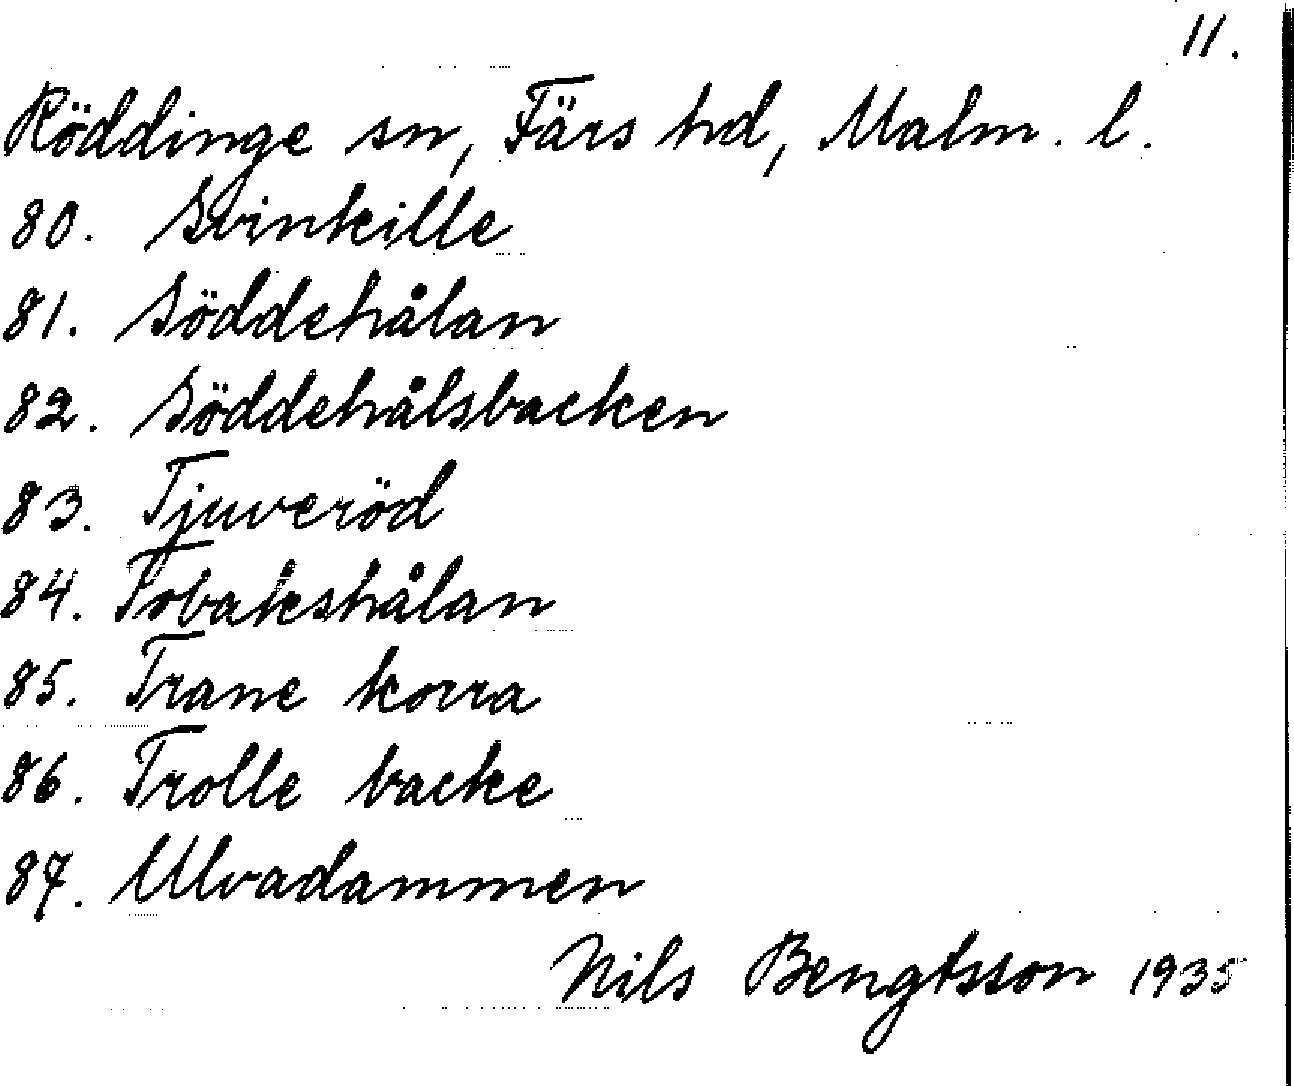 11.
Röddinge sn, Färs hd, Malm. l.
80. Svinkille
81. Söddehålan
82. Söddehålsbacken
83. Tjuveröd
84. Tobakshålan
85. Trane korra
86. Trolle backe
87. Ulvadammen
Nils Bengtsson 1935